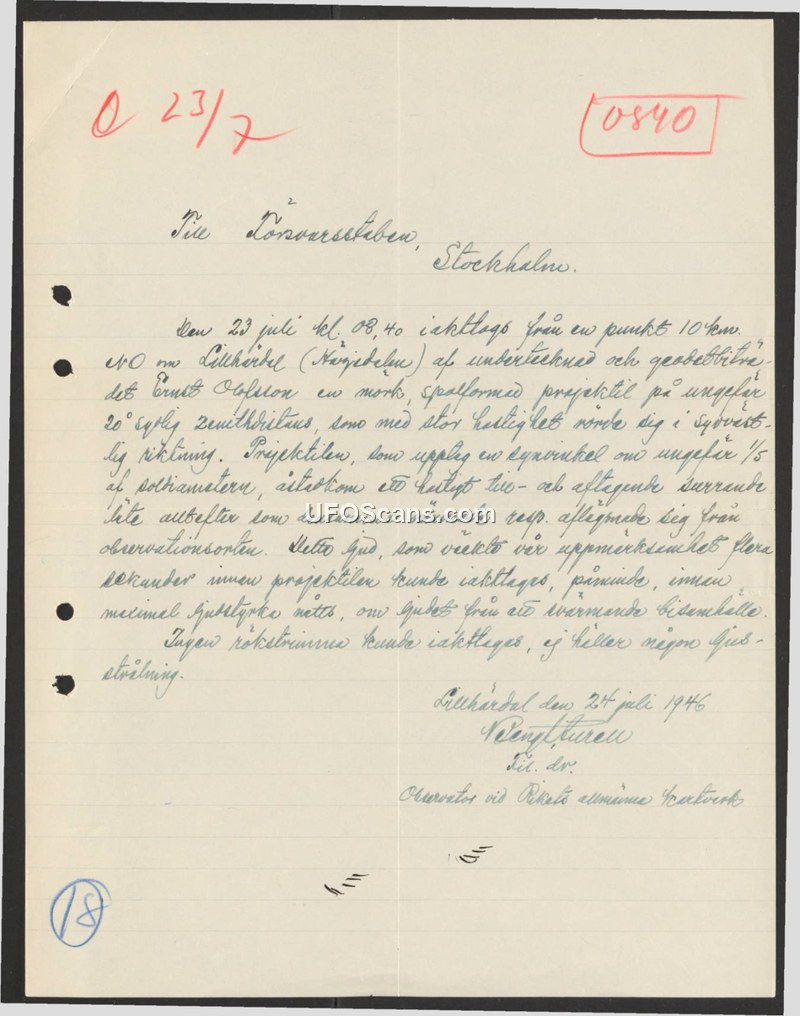 O 23/7
0840
Till Försvarsstaben,
Stockholm.
Den 23 juli kl. 08,40 iakttogs från en punkt 10 km.
NO om Lillhärdal (Härjedalen) af undertecknad och geodetbiträ-
det Ernst Olofsson en mörk, spolformad projektil på ungefär
20° sydlig zenithdistans, som med stor hastighet rörde sig i sydväst-
lig riktning. Projektilen, som upptog en synvinkel om ungefär 1/5
af soldiametern, åstadkom ett hastigt till- och aftagande surrande
läte allteftersom resp. aflägsnade sig från
observationsorten. Detta ljud, som väckte vår uppmärksamhet flera
sekunder innan projektilen kunde iakttagas, påminde, innan
maximal ljudstyrka nåtts, om ljudet från ett svärmande bisamhälle.
Ingen rökstrimma kunde iakttagas, ej häller någon ljus-
strålning.
Lillhärdal den 24 juli 1946
Fil. dr.
Observator vid Rikets allmänna kartverk
18
UFOScans.com